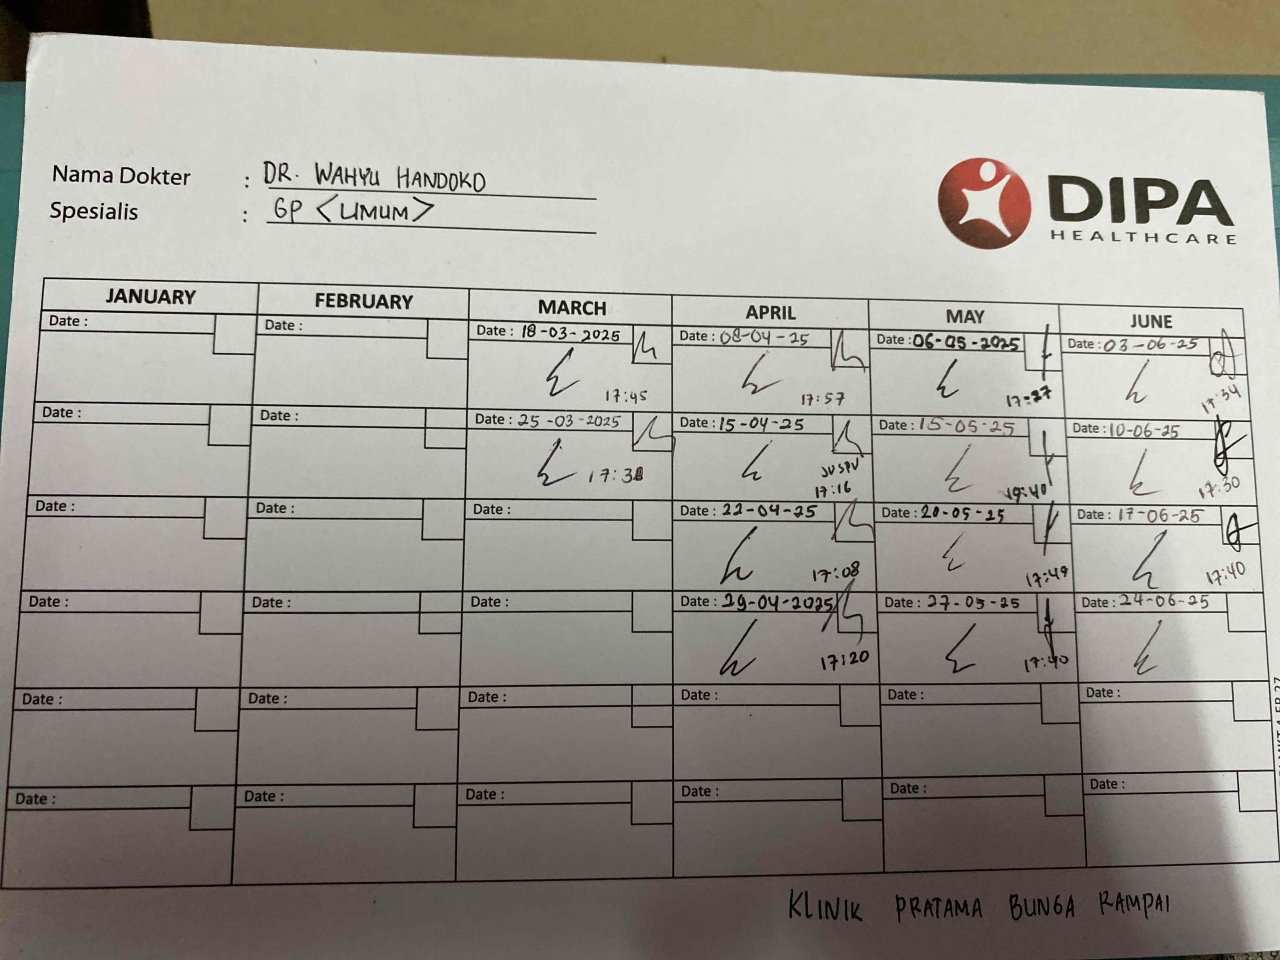 Nama Dokter : DR. WAHYU HANDOKO
Spesialis : GP <UMUM>
DIPA
HEALTHCARE
JANUARY FEBRUARY MARCH APRIL MAY JUNE
Date : Date : Date : 18-03-2025 Date : 08-04-25 Date : 06-05-2025 Date : 03-06-25
17:45 17:57 17:27 17:34
Date : Date : Date : 25-03-2025 Date : 15-04-25 Date : 15-05-25 Date : 10-06-25
17:38 17:16 19:40 17:30
Date : Date : Date : Date : 22-04-25 Date : 20-05-25 Date : 17-06-25
17:08 17:49 17:40
Date : Date : Date : Date : 29-04-2025 Date : 27-05-25 Date : 24-06-25
17:20 17:40
Date : Date : Date : Date : Date : Date :
Date : Date : Date : Date : Date : Date :
KLINIK PRATAMA BUNGA RAMPAI